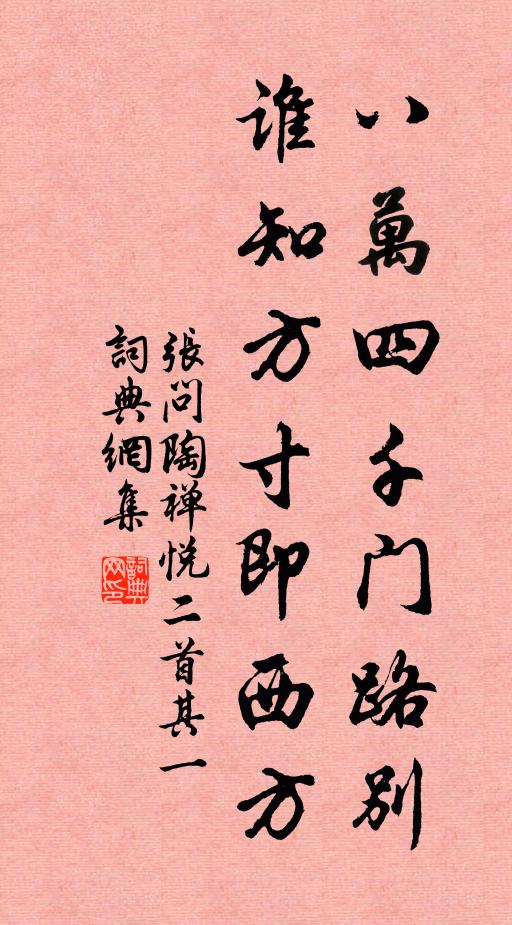 八萬四千門路別
誰知方寸即西方
張問陶禅悅二首其一
詞典網集
詞典网印